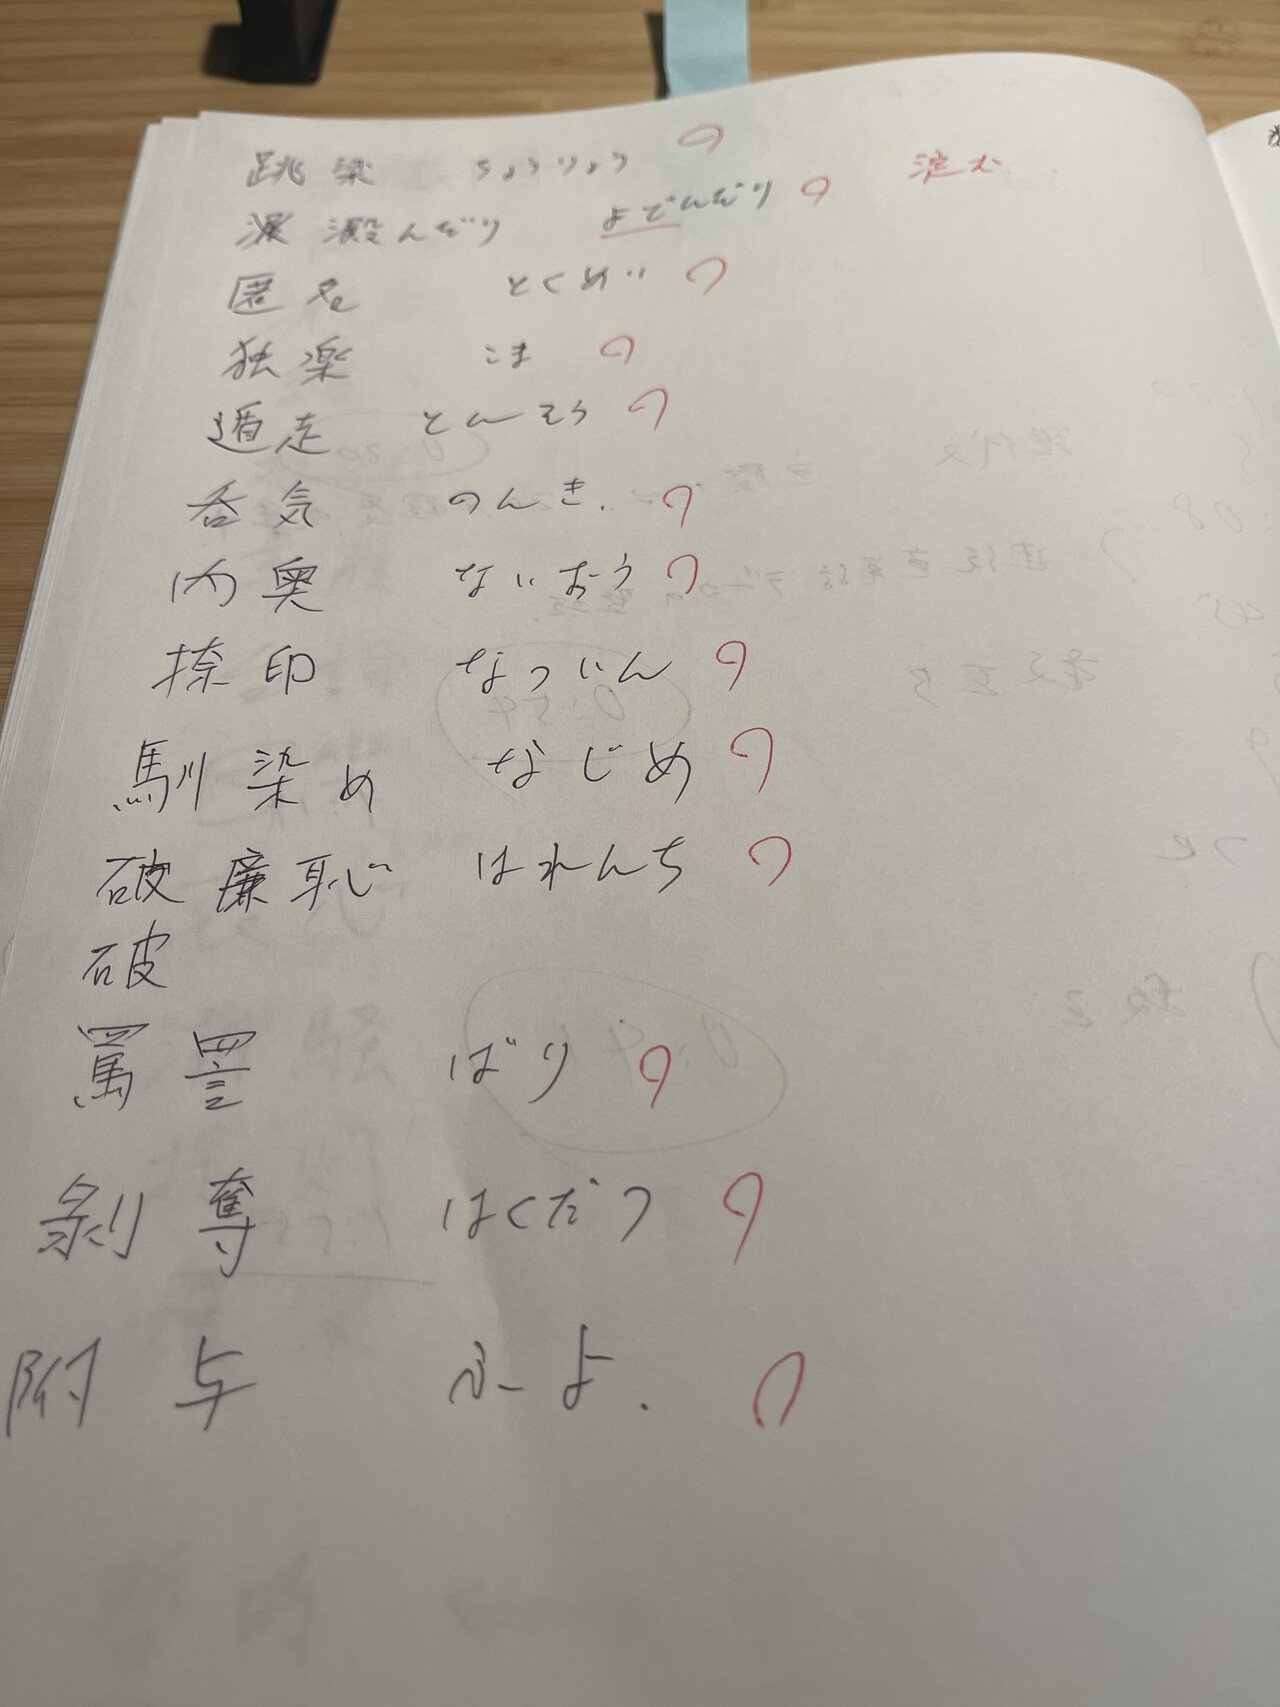 跳梁 ちょうりょう 淀む
澱んだり よどんだり
匿名 とくめい
独楽 こま
遁走 とんそう
呑気 のんき.
内奥 ないおう
捺印 なついん
馴染め なじめ
破廉恥 はれんち
破
罵詈 ばり
剥奪 はくだつ
附与 ふよ.